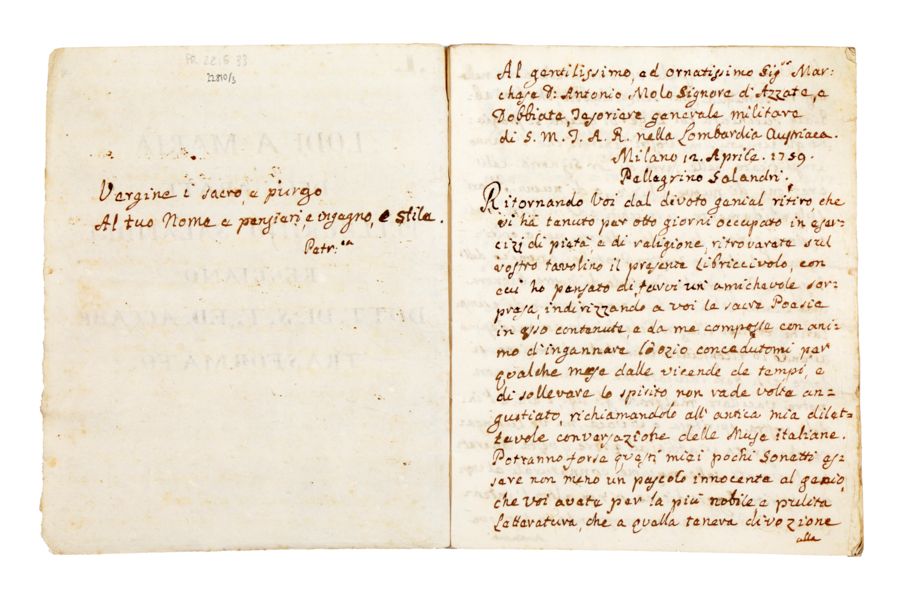 PR 2216 33
22810/3
Vergine i sacro, e purgo
Al tuo Nome e pensieri, e ingegno, e stile.
Petr.ca
Al gentilissimo, ed ornatissimo Sig.re Mar-
chese D: Antonio Molo Signore d'Azzate, e
Dobbiate, Tesoriere generale militare
di S. M. I. A. R. nella Lombardia Austriaca.
Milano 12. Aprile. 1759.
Pellegrino Salandri.
Ritornando Voi dal divoto genial ritiro, che
vi hà tenuto per otto giorni occupato in eser-
cizj di pietà, e di religione, ritroverete sul
vostro tavolino il presente libriccivolo, con
cui ho pensato di farvi un' amichevole sor-
presa, indirizzando a voi le sacre Poesie
in esso contenute, e da me composte con ani-
mo d'ingannare l'ozio concedutomi per
qualche mese dalle vicende de tempi, e
di sollevare lo spirito non rade volte an-
gustiato, richiamandolo all' antica mia dilet-
tevole conversazione delle Muse italiane.
Potranno forse questi miei pochi Sonetti es-
sere non meno un pascolo innocente al genio,
che voi avete per la più nobile e pulita
Letteratura, che a quella tenera divozione
alla